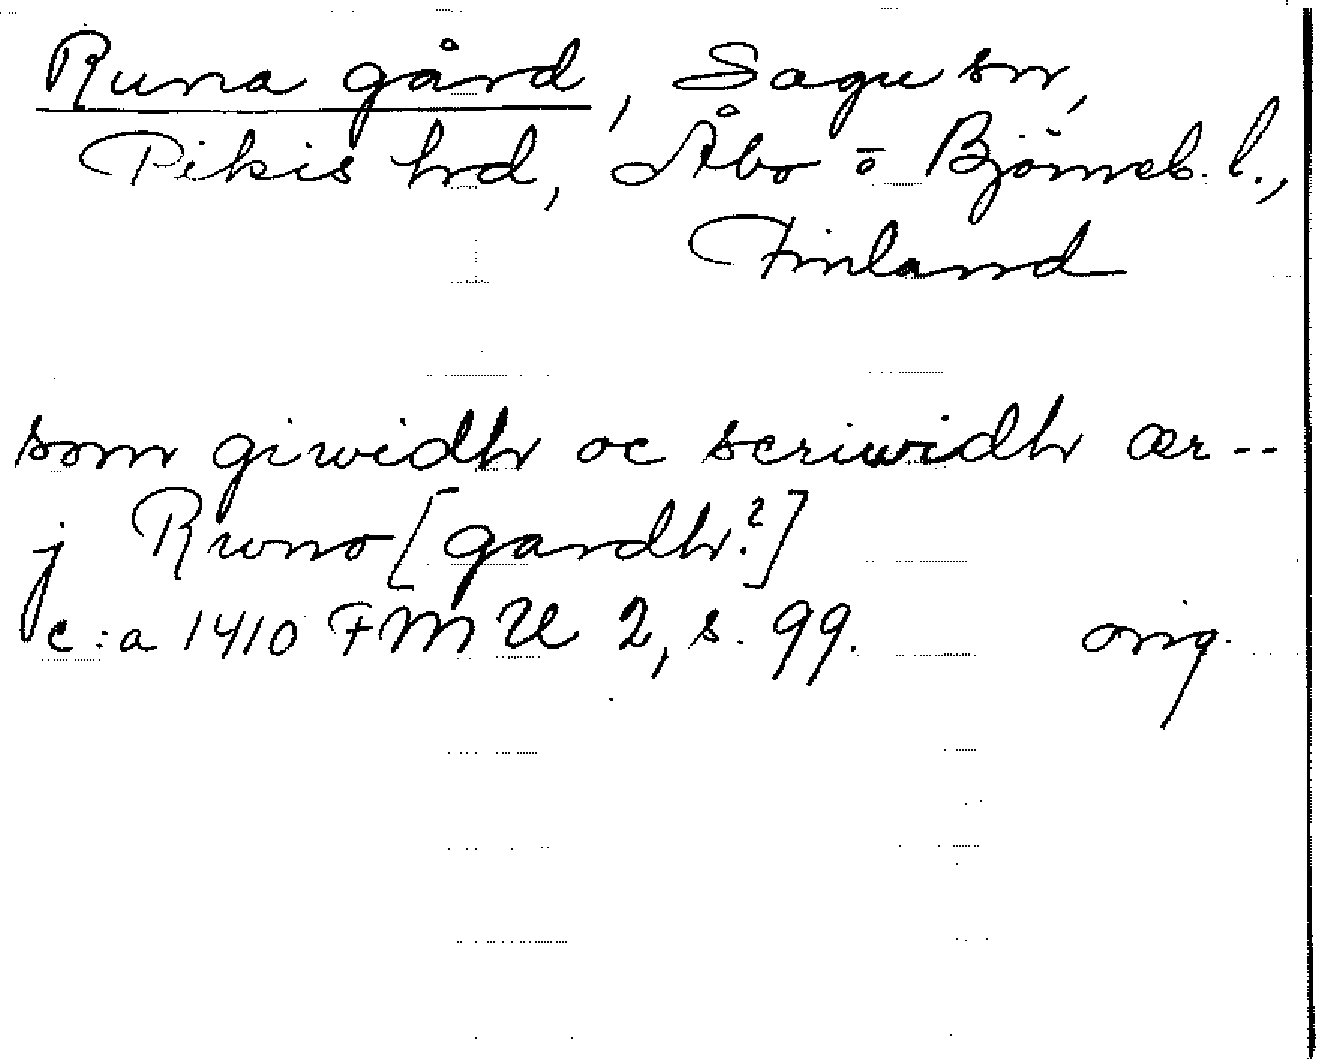 Runa gård, Sagu sn,
Pikis hrd, Åbo o Björneb. l.,
Finland
som giwidhr oc scriwidhr ær --
j Rwno [gardhr?]
c:a 1410 FMU 2, s. 99. orig.